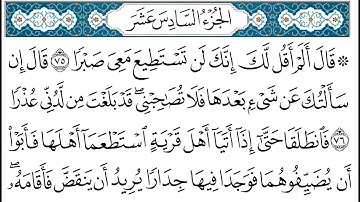 الجزء السادس عشر
۞ قَالَ أَلَمْ أَقُل لَّكَ إِنَّكَ لَن تَسْتَطِيعَ مَعِيَ صَبْرًا ٧٥ قَالَ إِن
سَأَلْتُكَ عَن شَيْءٍ بَعْدَهَا فَلَا تُصَاحِبْنِي ۖ قَدْ بَلَغْتَ مِن لَّدُنِّي عُذْرًا
٧٦ فَانطَلَقَا حَتَّىٰ إِذَا أَتَيَا أَهْلَ قَرْيَةٍ اسْتَطْعَمَا أَهْلَهَا فَأَبَوْا
أَن يُضَيِّفُوهُمَا فَوَجَدَا فِيهَا جِدَارًا يُرِيدُ أَن يَنقَضَّ فَأَقَامَهُ ۖ